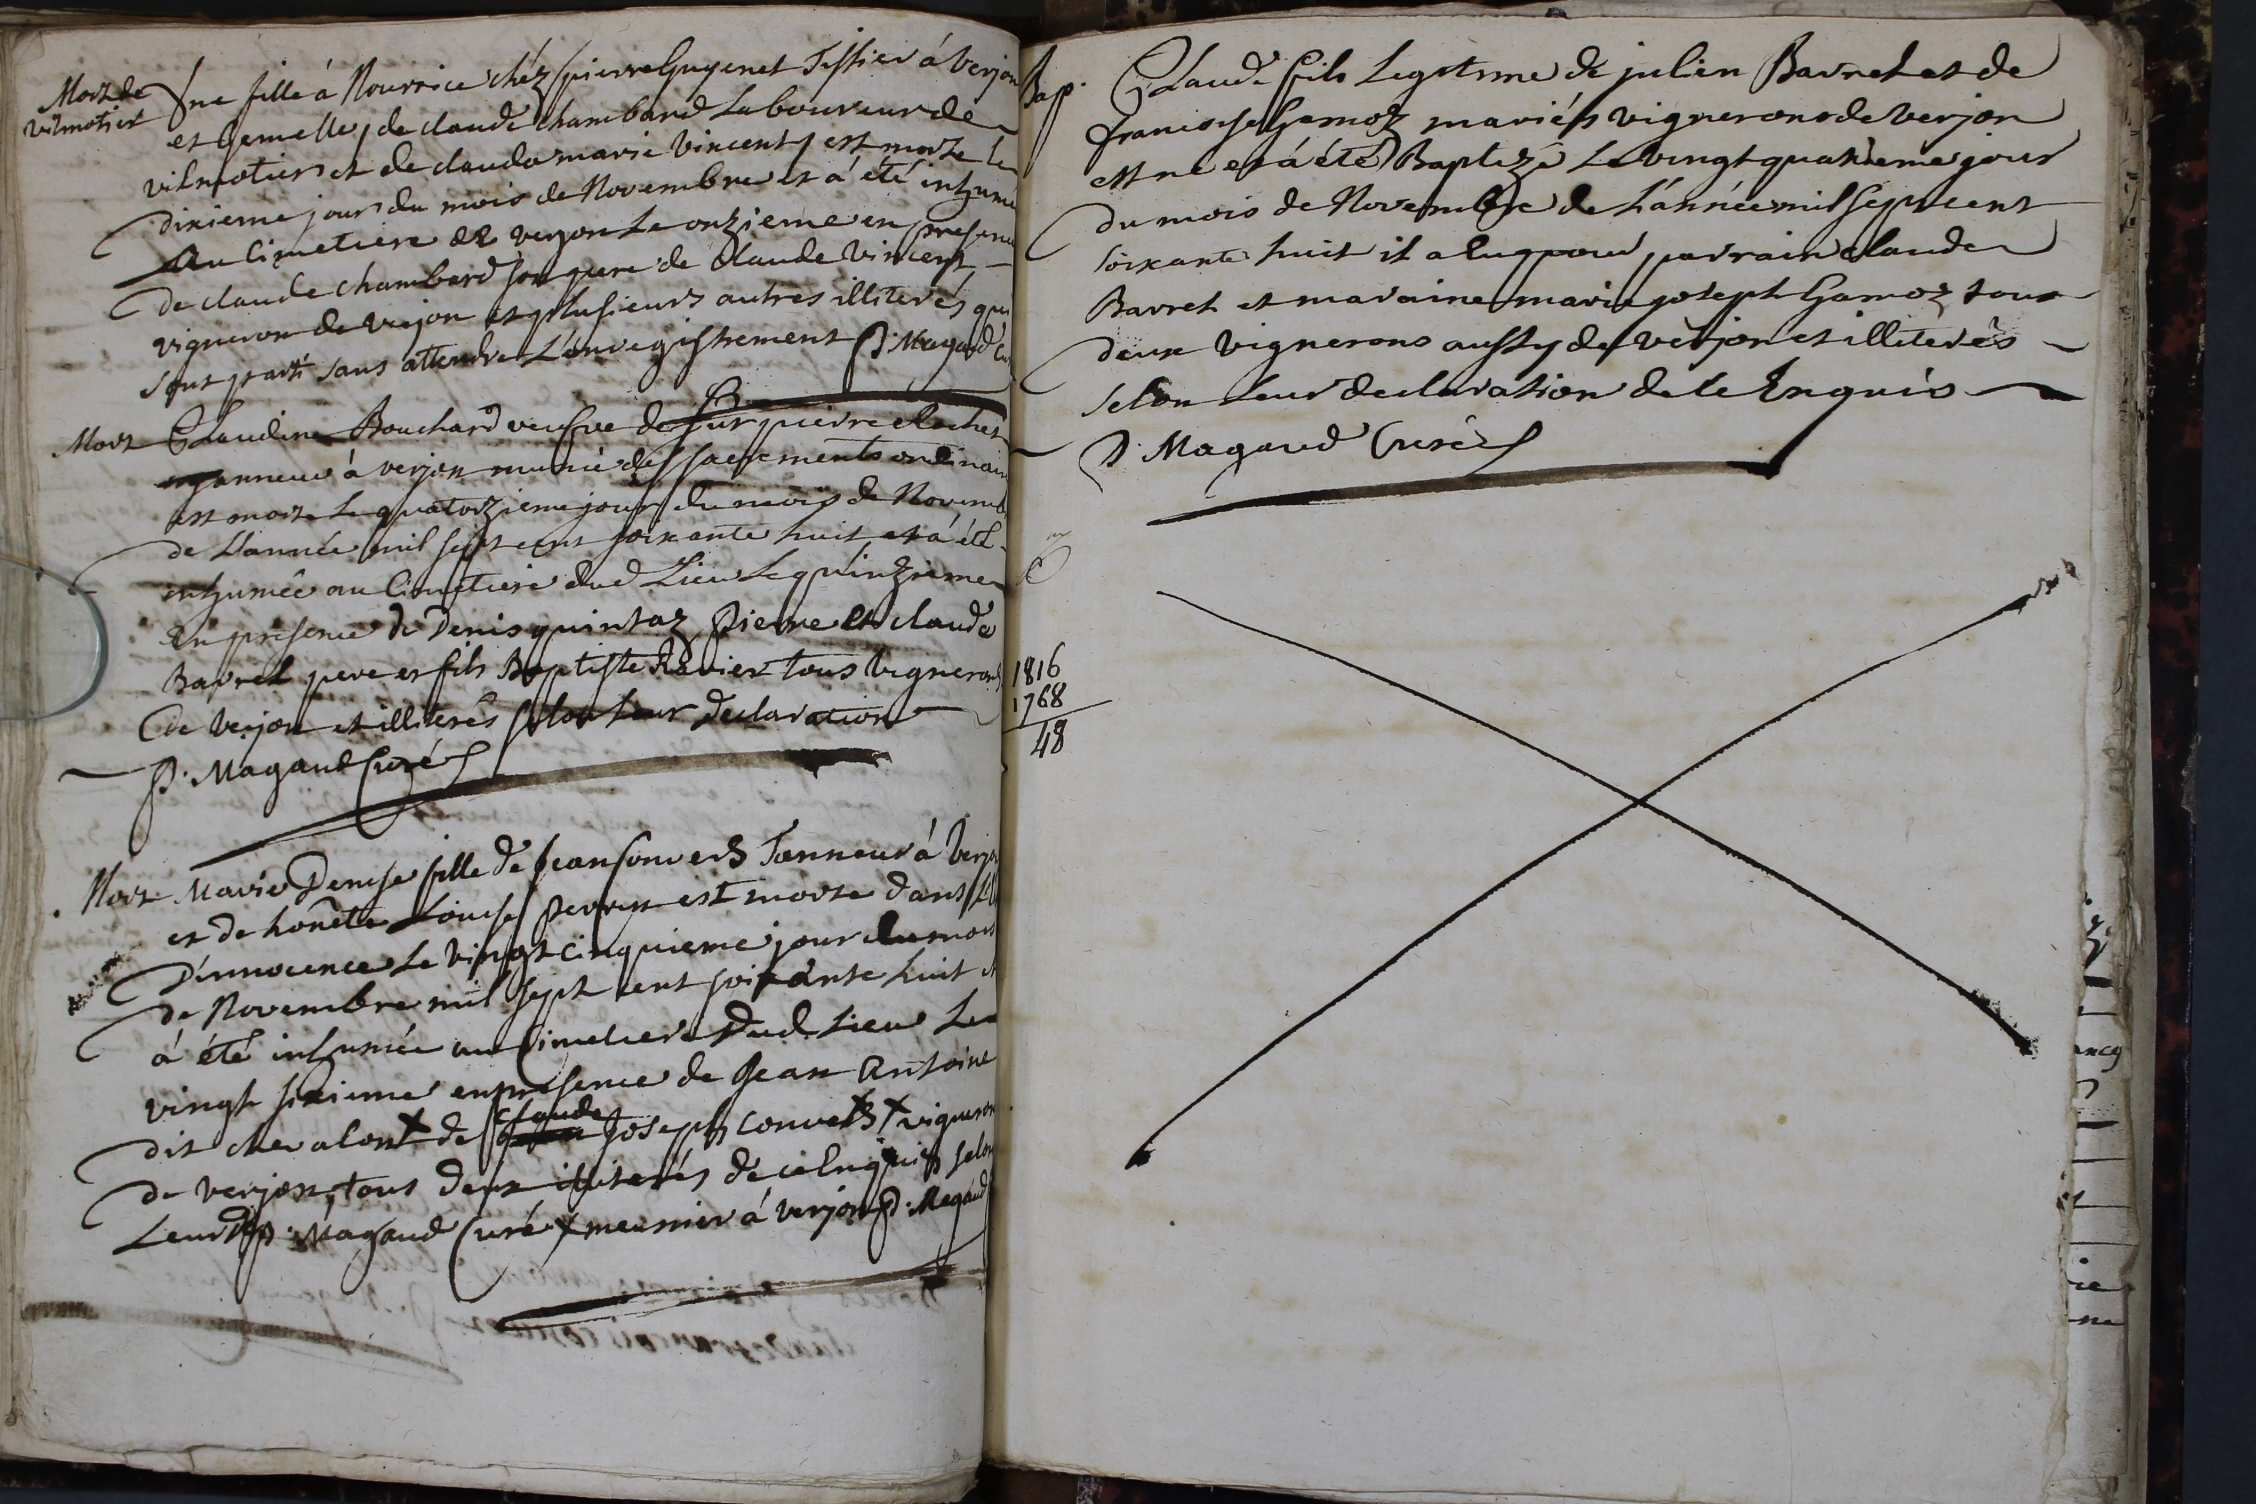 Mort de
vilmotier
Une fille à Nourrice chéz pierre Guyenet Tissier à Verjon
et Gemelle, de claude chambard Laboureur de
vilmotier et de clauda marie Vincent, est morte le
dixieme jour du mois de Novembre et á été inhumé
Au Cimetiere de verjon Le onzieme en presence
de claude chambard son pere de Claude Vincent
vigneron de verjon et plusieurs autres illiterés qui
sont parti sans attendre L'enregistrement P. Magaud Curé
Mort
Claudine Bouchard veufve de fut pierre
à verjon munie des sacrements ordinair
est morte Le quatorzieme jour du mois de Novemb
de L'année mil sept cent soixante huit et á été
inhumée au Cimetiere dud Lieu Le quinzieme
en presence de Denis quintaz pierre et claude
Barret pere et fils Baptiste Ravier tous vignerons
de Verjon et illiterés selon leur declaration
P. Magaud Curé
Mort
Marie Denise fille de Jean Convers Tanneur à Verjon
et de honête Louise perret est morte dans
D'innocence Le vingt cinquieme jour du mois
de Novembre mil sept cent soixante huit et
á été inhumée au Cimetiere Dud Lieu Le
vingt sixieme en presence de Jean Antoine
dit chevalon + de Claude Joseph Convers + vigneron
de verjon, tous deux illiterés de ce Enquis selon
Leur P. Magaud Curé + meunier á verjon P. Magaud
Bap.
Claude fils Legitime de julien Barret et de
francoise Gamoz mariés vignerons de verjon
est ne et á été Baptizé Le vingt quatrieme jour
du mois de Novembre de L'année mil sept cent
soixante huit il a Eu pour parrain claude
Barret et maraine marie joseph Gamoz tous
deux vignerons aussy de verjon et illiterés
selon Leur declaration de ce Enquis
P. Magaud Curé
1816
1768
48